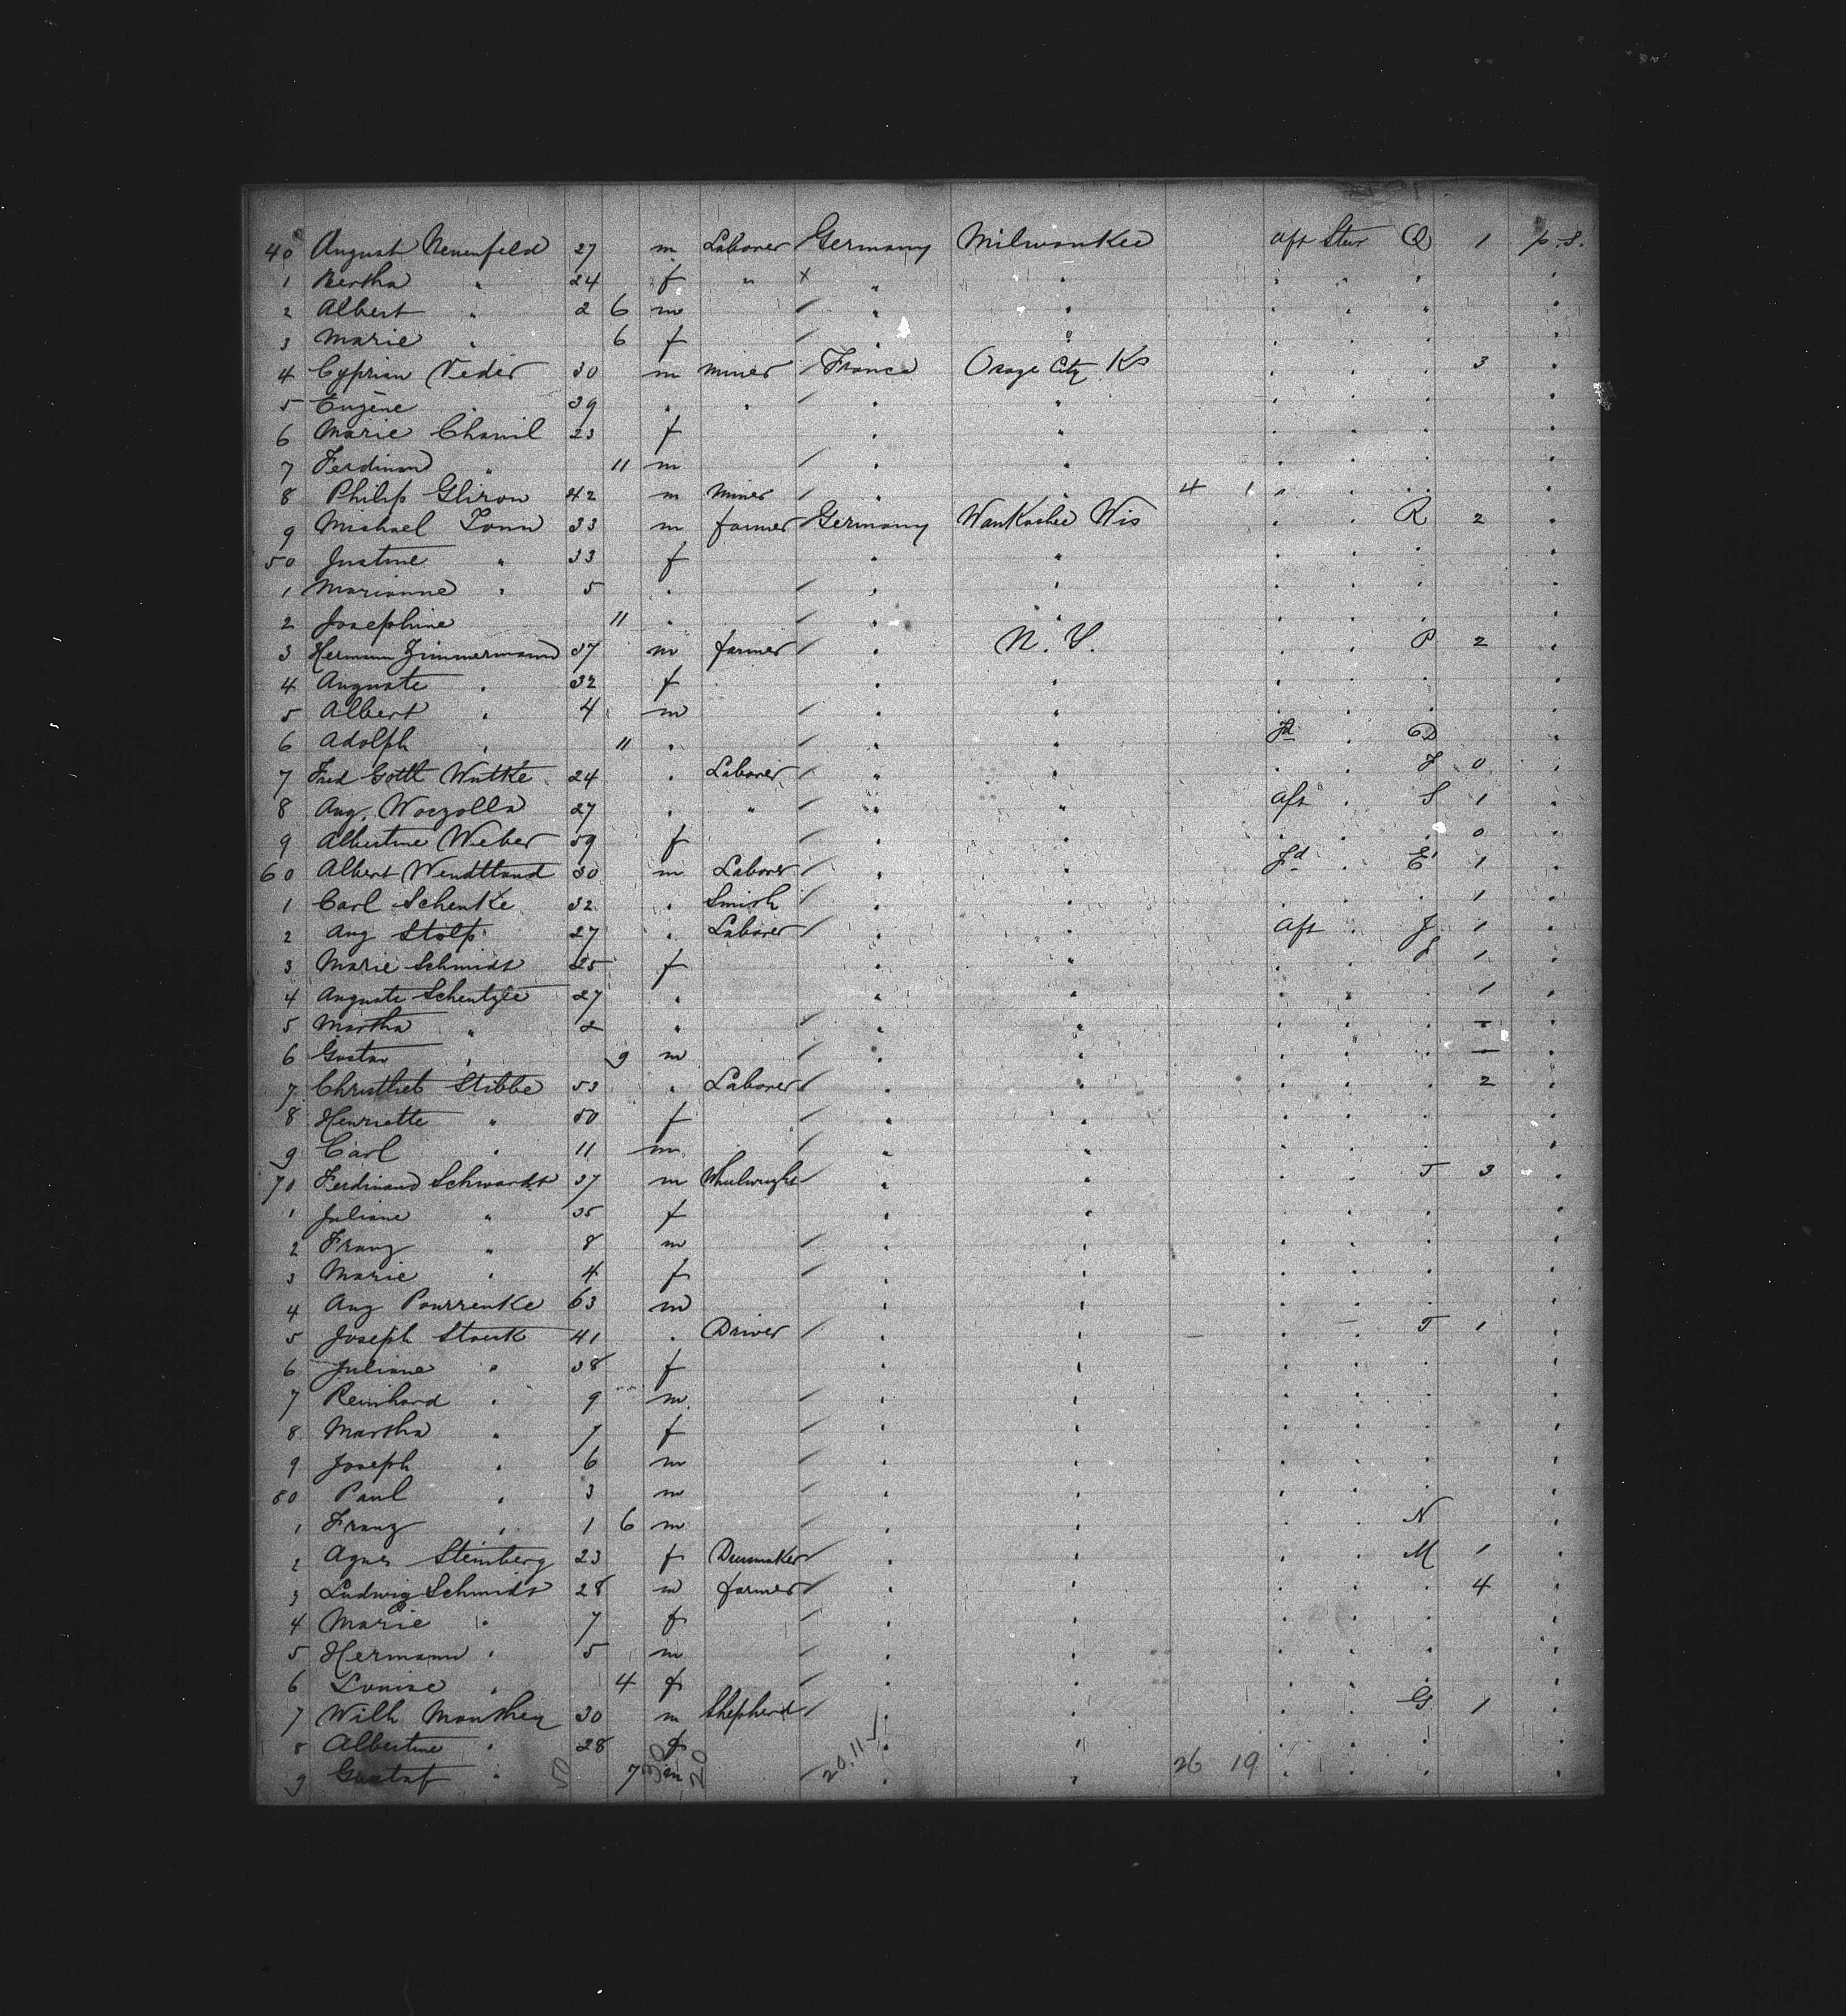 40 August Neuenfeld 27 m Laborer Germany Milwaukee aft Stew Q 1 p.s.
1 Bertha " 24 f " × " " " " " "
2 Albert " 2 6 m / " " " " " "
3 Marie " 6 f / " " " " " "
4 Cyprian Veder 30 m miner / France Osage City Ks " " " 3 "
5 Eugene " 39 " " / " " " " " "
6 Marie Chamil 23 f " " " " " "
7 Ferdinand " 11 m / " " " " " "
8 Philip Gliron 42 m Miner / " " 4 1 " " " "
9 Michael Tonn 33 m farmer Germany Waukashee Wis " " R 2 "
50 Justine " 33 f " " " " " "
1 Marianne " 5 " / " " " " " "
2 Josephine 11 " / " " " " " "
3 Hermann Zimmermann 37 m farmer / " N. Y. " " P 2 "
4 Auguste " 32 f " " " " " "
5 Albert " 4 m / " " " " " "
6 Adolph " 11 " / " " Fd "
7 Fred Gottl Wutke 24 " Laborer / " " " " F 0 "
8 Aug. Woczolla 27 " " / " " aft " S 1 "
9 Albertine Weber 59 f / " " " " " 0 "
60 Albert Wendtland 30 m Laborer / " " Fd " E 1 "
1 Carl Schenke 32 " Smith / " " " " " 1 "
2 Aug Stolp 27 " Laborer / " " Aft " J 1 "
3 Marie Schmidt 25 f " " " " 1 "
4 Auguste Schentzle 27 " " " " " " 1 "
5 Martha " 2 " / " " " " " — "
6 Gustav " 9 m / " " " " " — "
7 Christlieb Stibbe 53 " Laborer / " " " " " 2 "
8 Henriette " 50 f / " " " " " "
9 Carl " 11 m / " " " " " "
70 Ferdinand Schwardt 37 m Wheelwright / " " " " T 3 "
1 Juliane " 35 f " " " " " "
2 Franz " 8 m / " " " " " "
3 Marie " 4 f / " " " " " "
4 Aug Pourrenke 63 m " " " " " "
5 Joseph Stark 41 " Driver / " " " " T 1 "
6 Juliane " 38 f " " " " " "
7 Reinhard " 9 m / " " " " " "
8 Martha " 7 f / " " " " " "
9 Joseph " 6 m / " " " " " "
80 Paul " 3 m / " " " " " "
1 Franz " 1 6 m / " " " " N "
2 Agnes Steinberg 23 f Dressmaker / " " " " M 1 "
3 Ludwig Schmidt 28 m farmer / " " " " " 4 "
4 Marie " 7 f / " " " " " "
5 Hermann " 5 m / " " " " " "
6 Louise " 4 f / " " " " " "
7 Wilh Manthey 30 m Shepherd / " " " " G 1 "
8 Albertine " 28 f " " " " " "
9 Gustaf " 7 m / " " 26 19 " " " "
50 30 20 20.11